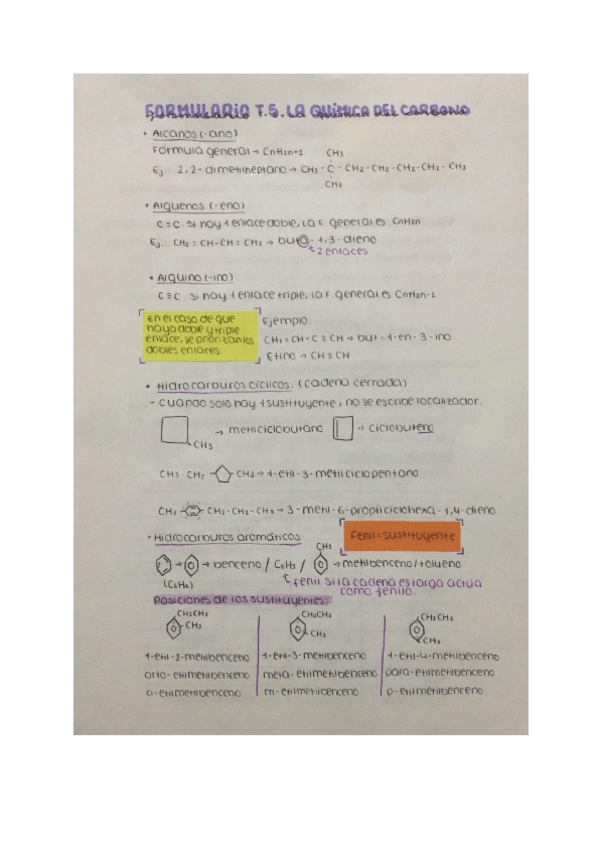 FORMULARIO T.5. LA QUÍMICA DEL CARBONO
• Alcanos (-ano)
Fórmula general → CnH2n+2
CH3
Ej.: 2,2-dimetilheptano → CH3 - C - CH2-CH2-CH2-CH2-CH3
CH3
• Alquenos (-eno)
C=C. Si hay 1 enlace doble, la F. general es CnH2n
Ej.: CH2=CH-CH=CH2 → buta-1,3-dieno
2 enlaces
• Alquino (-ino)
C≡C. Si hay 1 enlace triple, la F. general es CnH2n-2
En el caso de que
haya doble y triple
enlace, se priorizan los
dobles enlaces.
Ejemplo:
CH2=CH-C≡CH → but-1-en-3-ino
Etino → CH≡CH
• Hidrocarburos cíclicos. (cadena cerrada)
- Cuando solo hay 1 sustituyente, no se escribe localizador.
→ metilciclobutano → ciclobuteno
CH3
CH3-CH2 CH3 → 1-etil-3-metilciclopentano
CH3 CH2-CH2-CH3 → 3-metil-6-propilciclohexa-1,4-dieno
• Hidrocarburos aromáticos
Fenil = sustituyente
CH3
→ → benceno / C6H5 / → metilbenceno / tolueno
(C6H6)
fenil si la cadena es larga actúa
como fenilo.
Posiciones de los sustituyentes:
CH2CH3 CH2CH3 CH2CH3
CH3 CH3 CH3
1-etil-2-metilbenceno 1-etil-3-metilbenceno 1-etil-4-metilbenceno
orto-etilmetilbenceno meta-etilmetilbenceno para-etilmetilbenceno
o-etilmetilbenceno m-etilmetilbenceno p-etilmetilbenceno